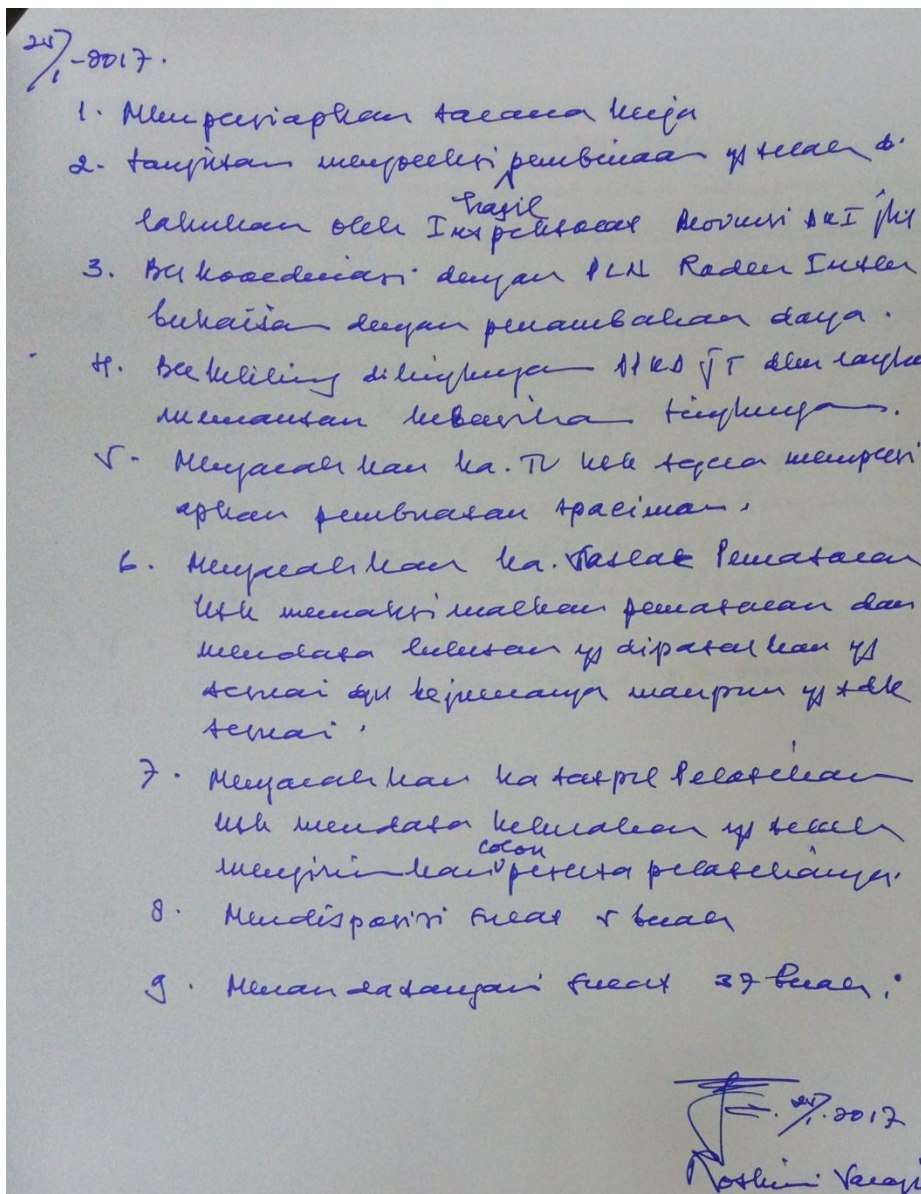 25/1-2017.
1. Mempersiapkan sarana kerja
2. Lanjutan mengoreksi pembinaan yg telah di
hasil
lakukan oleh Inspektorat Provinsi DKI Jkt
3. Berkoordinasi dengan PLN Raden Inten
berkaitan dengan penambahan daya.
4. Berkeliling dilingkungan JT dlm rangka
memantau kebersihan lingkungan.
5. Mengarahkan ka. TU utk segera mempersi
apkan pembuatan spaciman.
6. Mengarahkan ka. Satlak Pemasaran
utk memaksimalkan pemasaran dan
mendata lulusan yg dipasarkan yg
sesuai dgn kejuruanya maupun yg tdk
sesuai.
7. Mengarahkan ka satpel Pelatihan
utk mendata kelurahan yg telah
calon
mengirimkan peserta pelatihannya.
8. Mendisposisi surat 5 buah
9. Menandatangani surat 37 buah.
25/1.2017